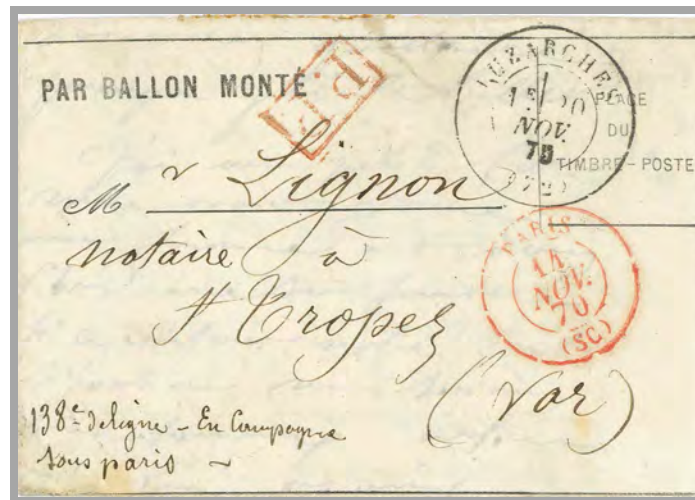 PAR BALLON MONTÉ
P.P.
LUZARCHES
NOV.
70
PLACE
DU
TIMBRE-POSTE
Mr Lignon
notaire à
St Tropez
(Var)
PARIS
NOV.
70
(SC)
138e de ligne - En Campagne
sous paris -